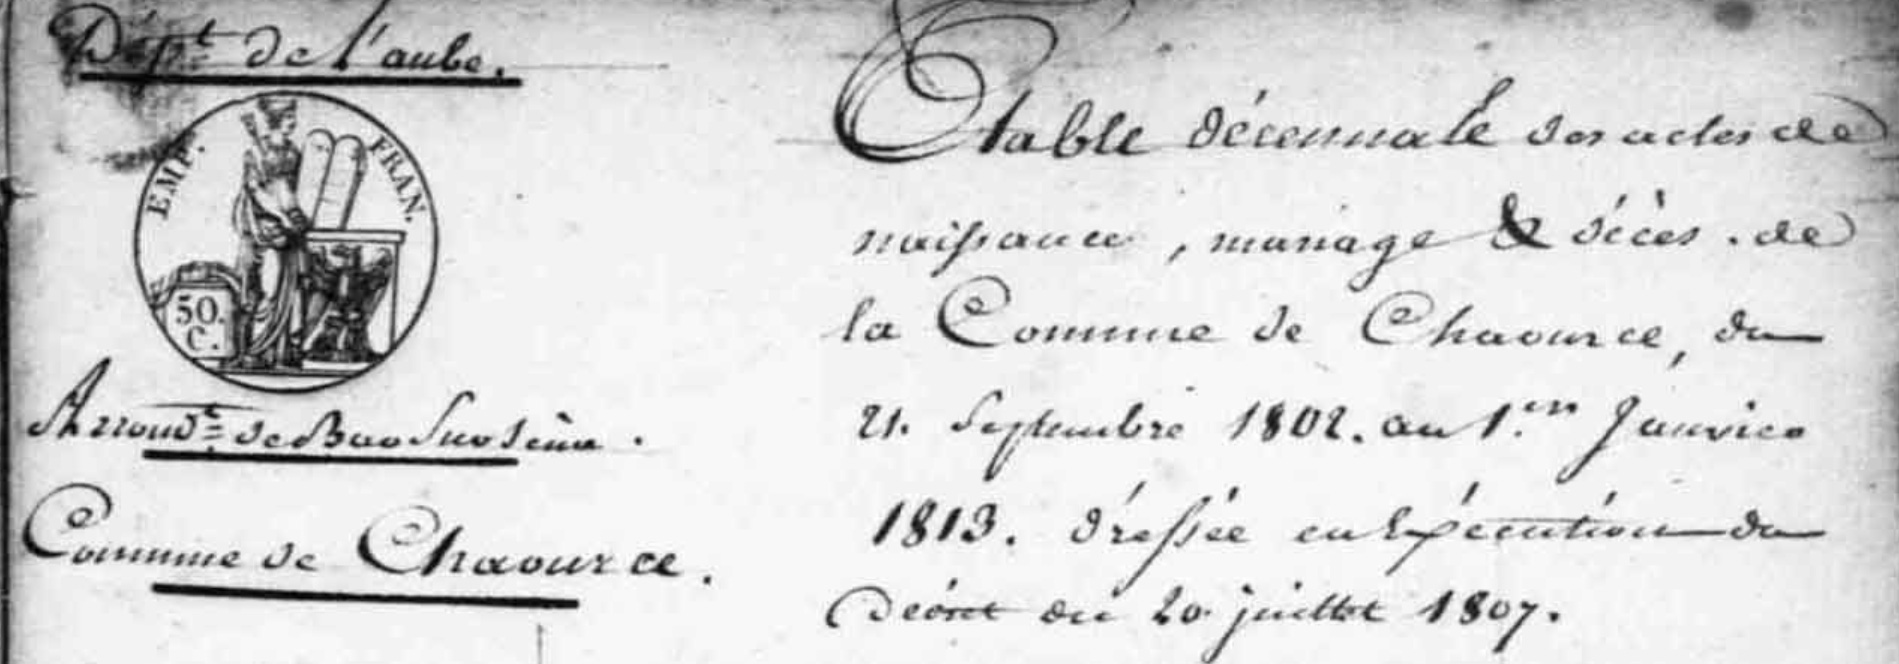 Dép.t de l'aube.
EMP. FRAN.
50.
C.
Arrond.t de Bar Sur Seine.
Commune de Chaource.
table décennale des actes de
naissance, mariage & décès. de
la Commune de Chaource, du
21. Septembre 1802. au 1.er Janvier
1813. dréssée en Exécution du
Décret du 20 juillet 1807.